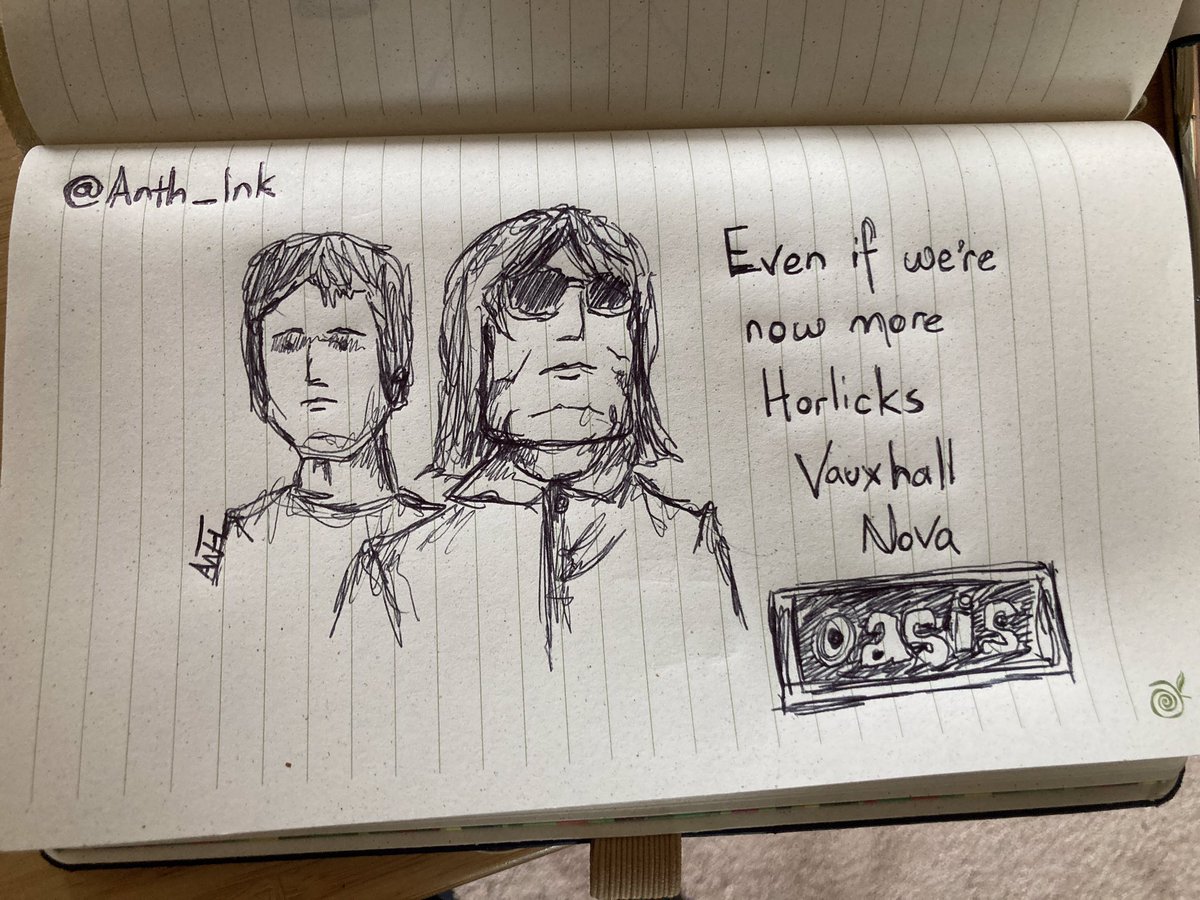 @Anth_Ink
Even if we're
now more
Horlicks
Vauxhall
Nova
ANTH
oasis